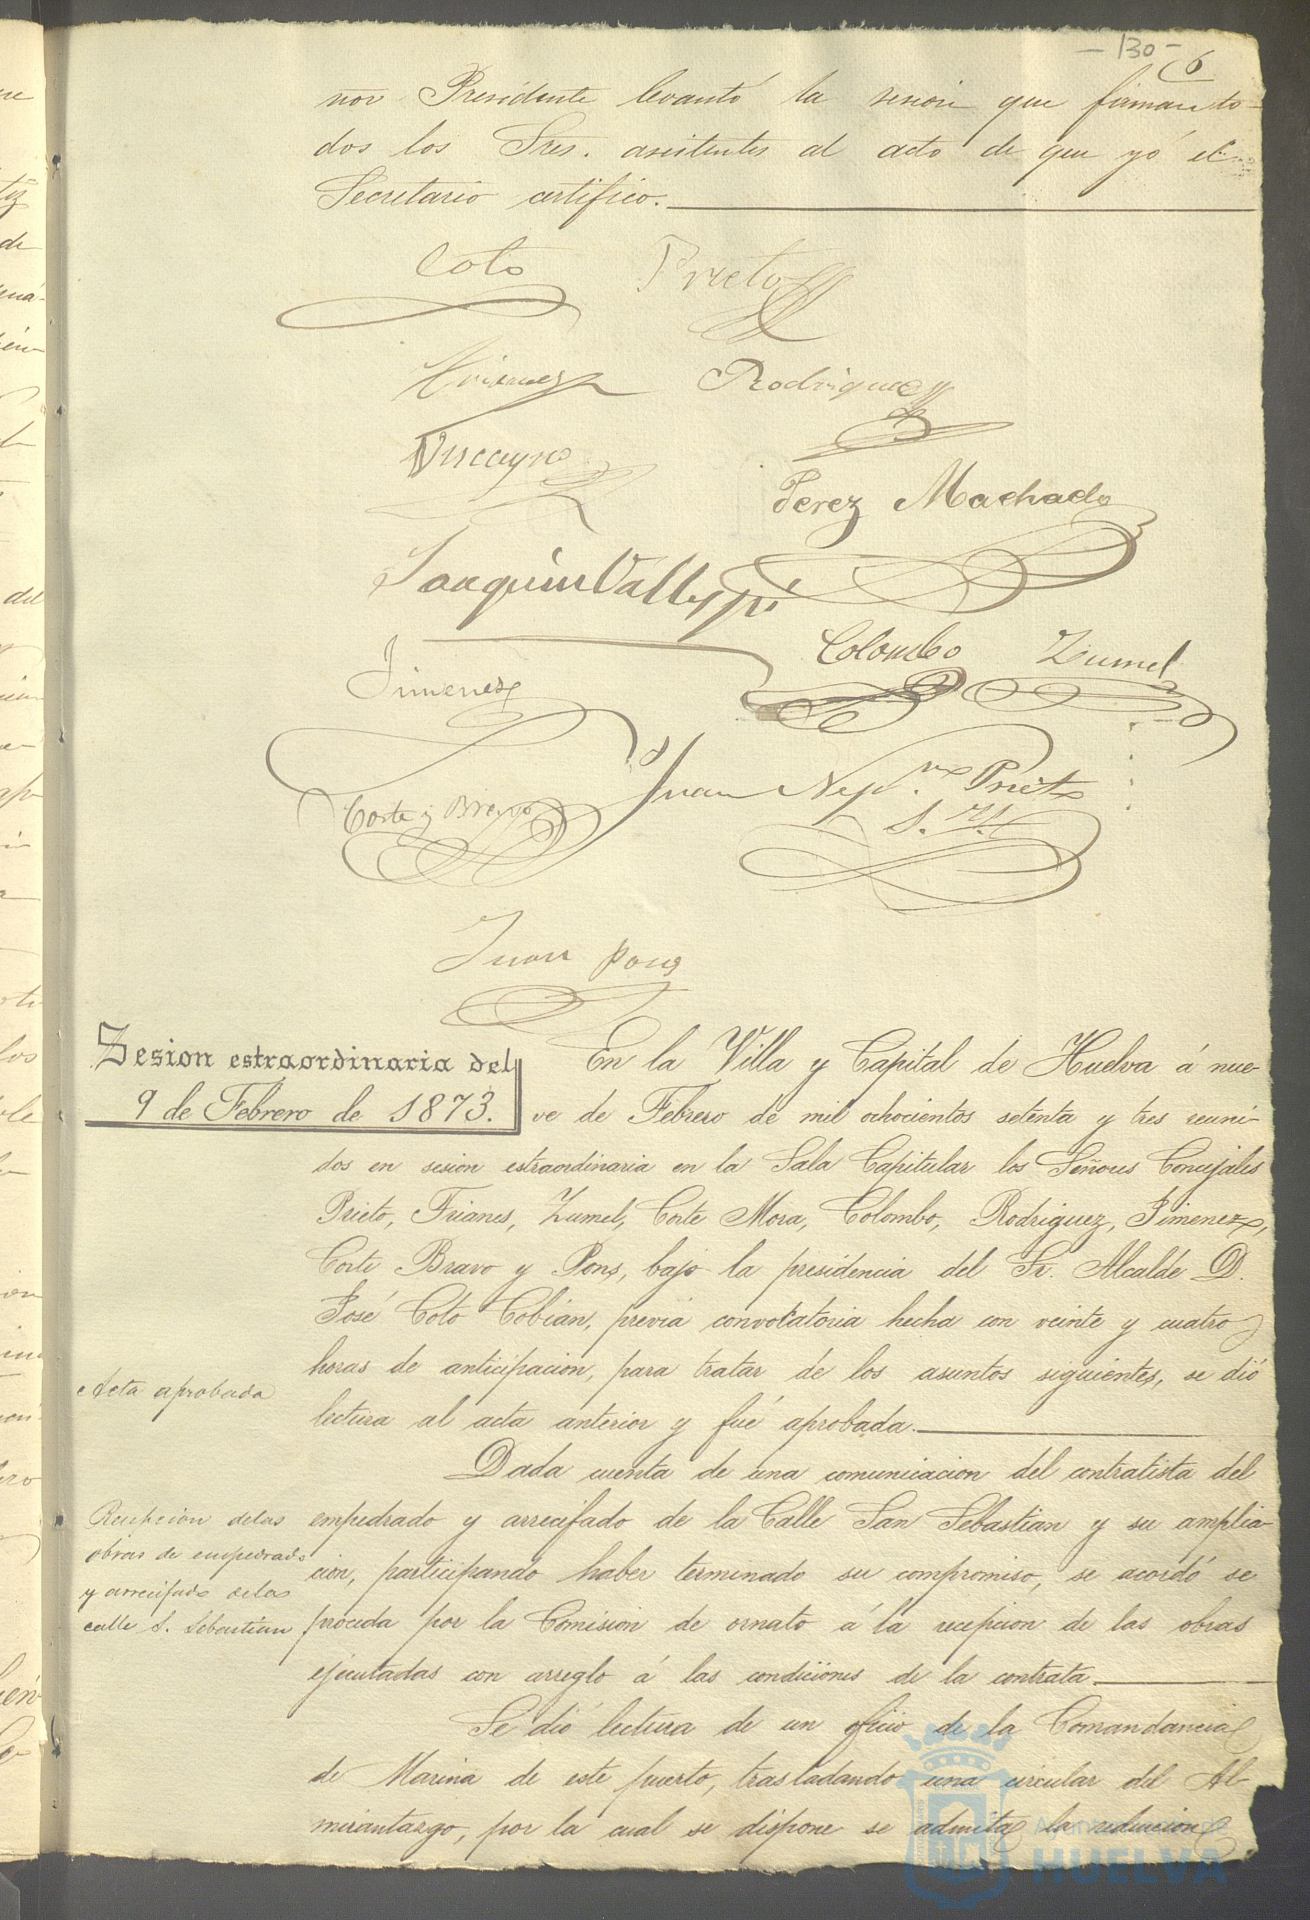 - 130 -
6
nor Presidente levantó la sesion que firman to-
dos los Sres. asistentes al acto de que yó el
Secretario certifico.
Coto Prieto
Rodriguez
Viscayno
Perez Machado
Joaquin Vallespi
Colombo Zumel
Jimenez
Juan Nep.º Prieto
Corte y Bravo
Juan Pons
Sesion estraordinaria del
9 de Febrero de 1873.
En la Villa y Capital de Huelva á nue-
ve de Febrero de mil ochocientos setenta y tres reuni-
dos en sesion estraordinaria en la Sala Capitular los Señores Concejales
Prieto, Frianes, Zumel, Corte Mora, Colombo, Rodriguez, Jimenez,
Corte Bravo y Pons, bajo la presidencia del Sr. Alcalde D.
José Coto Cobian, prévia convocatoria hecha con veinte y cuatro
horas de anticipacion, para tratar de los asuntos siguientes, se dió
Acta aprobada
lectura al acta anterior y fué aprobada.
Dada cuenta de una comunicacion del contratista del
Recepcion de las
obras de empedrado
y arrecifado de la
calle S. Sebastian
empedrado y arrecifado de la Calle San Sebastian y su amplia-
cion, participando haber terminado su compromiso, se acordó se
proceda por la Comision de ornato á la recepcion de las obras
ejecutadas con arreglo á las condiciones de la contrata.
Se dió lectura de un oficio de la Comandancia
de Marina de este puerto, trasladando una circular del Al-
mirantazgo, por la cual se dispone se admita la redencion
Ayuntamiento de
HUELVA